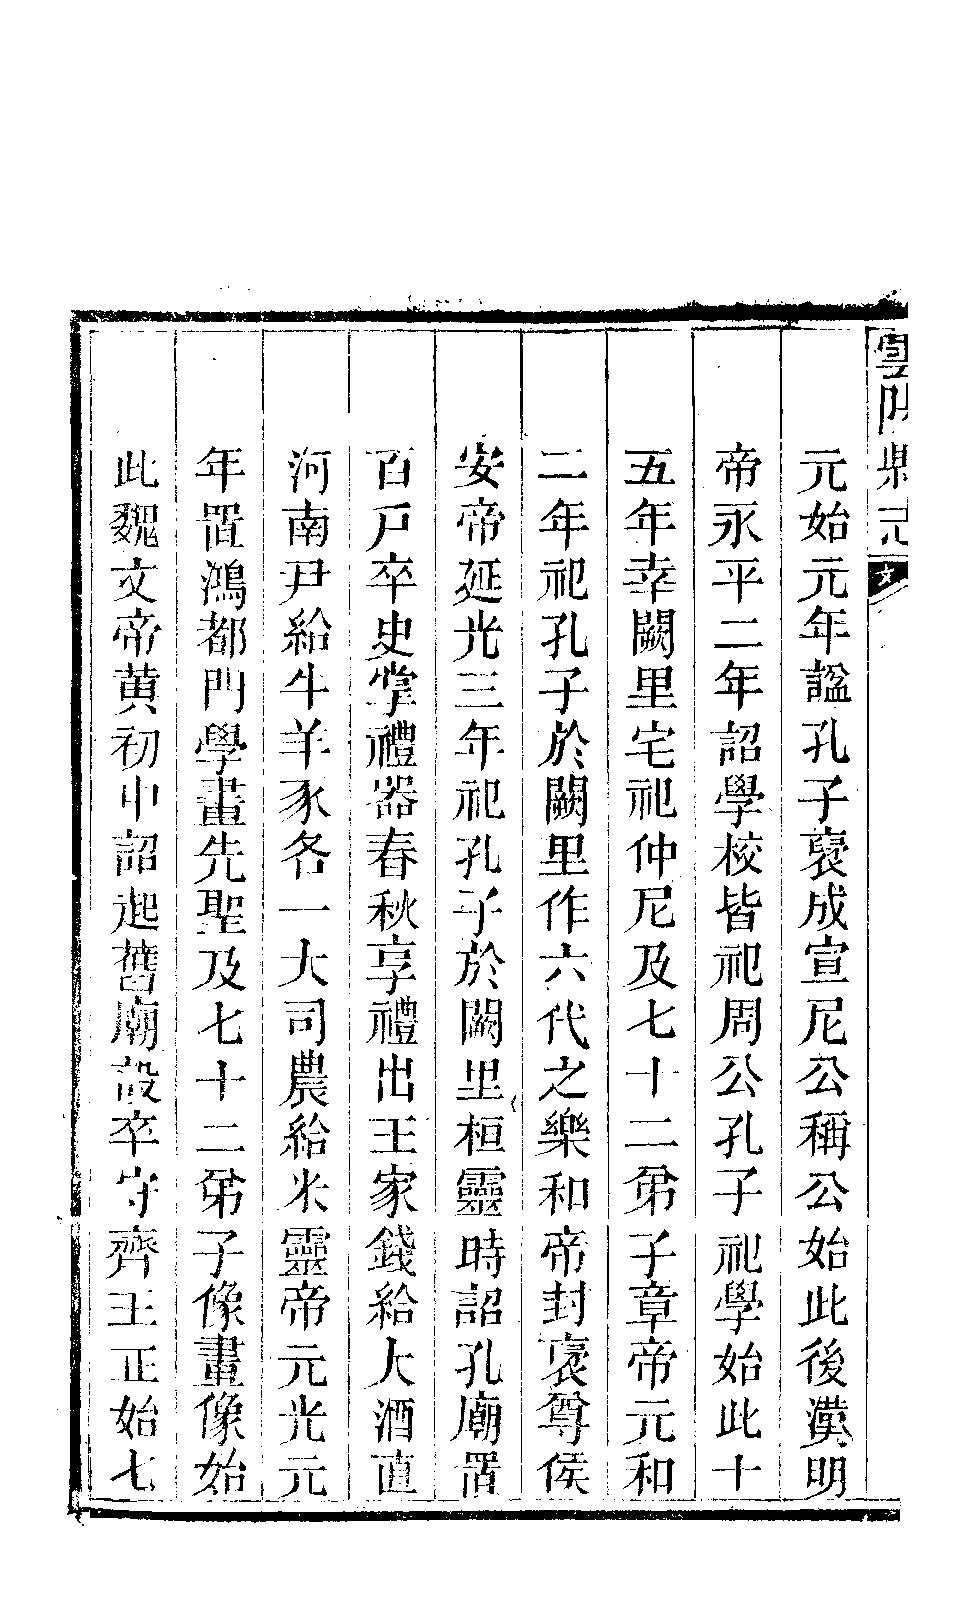 雲陽縣志
文
元始元年諡孔子襃成宣尼公稱公始此後漢明
帝永平二年詔學校皆祀周公孔子祀學始此十
五年幸闕里宅祀仲尼及七十二弟子章帝元和
二年祀孔子於闕里作六代之樂和帝封襃尊侯
安帝延光三年祀孔子於闕里桓靈時詔孔廟置
百戸卒史掌禮器春秋享禮出王家錢給大酒直
河南尹給牛羊豕各一大司農給米靈帝元光元
年置鴻都門學畫先聖及七十二弟子像畫像始
此魏文帝黄初中詔起舊廟設卒守齊王正始七